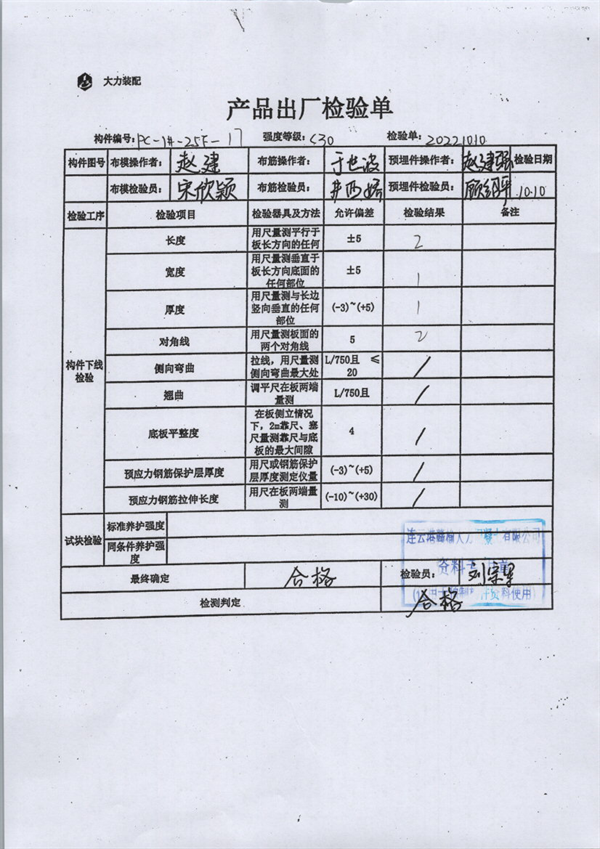 大力装配
产品出厂检验单
构件编号:PC-1#-25F-17 强度等级:C30 检验单:20221010
构件图号 布模操作者: 赵建 布筋操作者: 于世波 预埋件操作者: 赵建强 检验日期
布模检验员: 宋欣颖 布筋检验员: 预埋件检验员: 10.10
检验工序 检验项目 检验器具及方法 允许偏差 检验结果 备注
构件下线检验
长度 用尺量测平行于板长方向的任何 ±5 2
宽度 用尺量测垂直于板长方向底面的任何部位 ±5 1
厚度 用尺量测与长边竖向垂直的任何部位 (-3)~(+5) 1
对角线 用尺量测板面的两个对角线 5 2
侧向弯曲 拉线，用尺量测侧向弯曲最大处 L/750且 ≤20 /
翘曲 调平尺在板两端量测 L/750且 /
底板平整度 在板侧立情况下，2m靠尺、塞尺量测靠尺与底板的最大间隙 4 /
预应力钢筋保护层厚度 用尺或钢筋保护层厚度测定仪量 (-3)~(+5) /
预应力钢筋拉伸长度 用尺在板两端量测 (-10)~(+30) /
试块检验 标准养护强度
同条件养护强度
最终确定 合格 检验员:
检测判定 合格